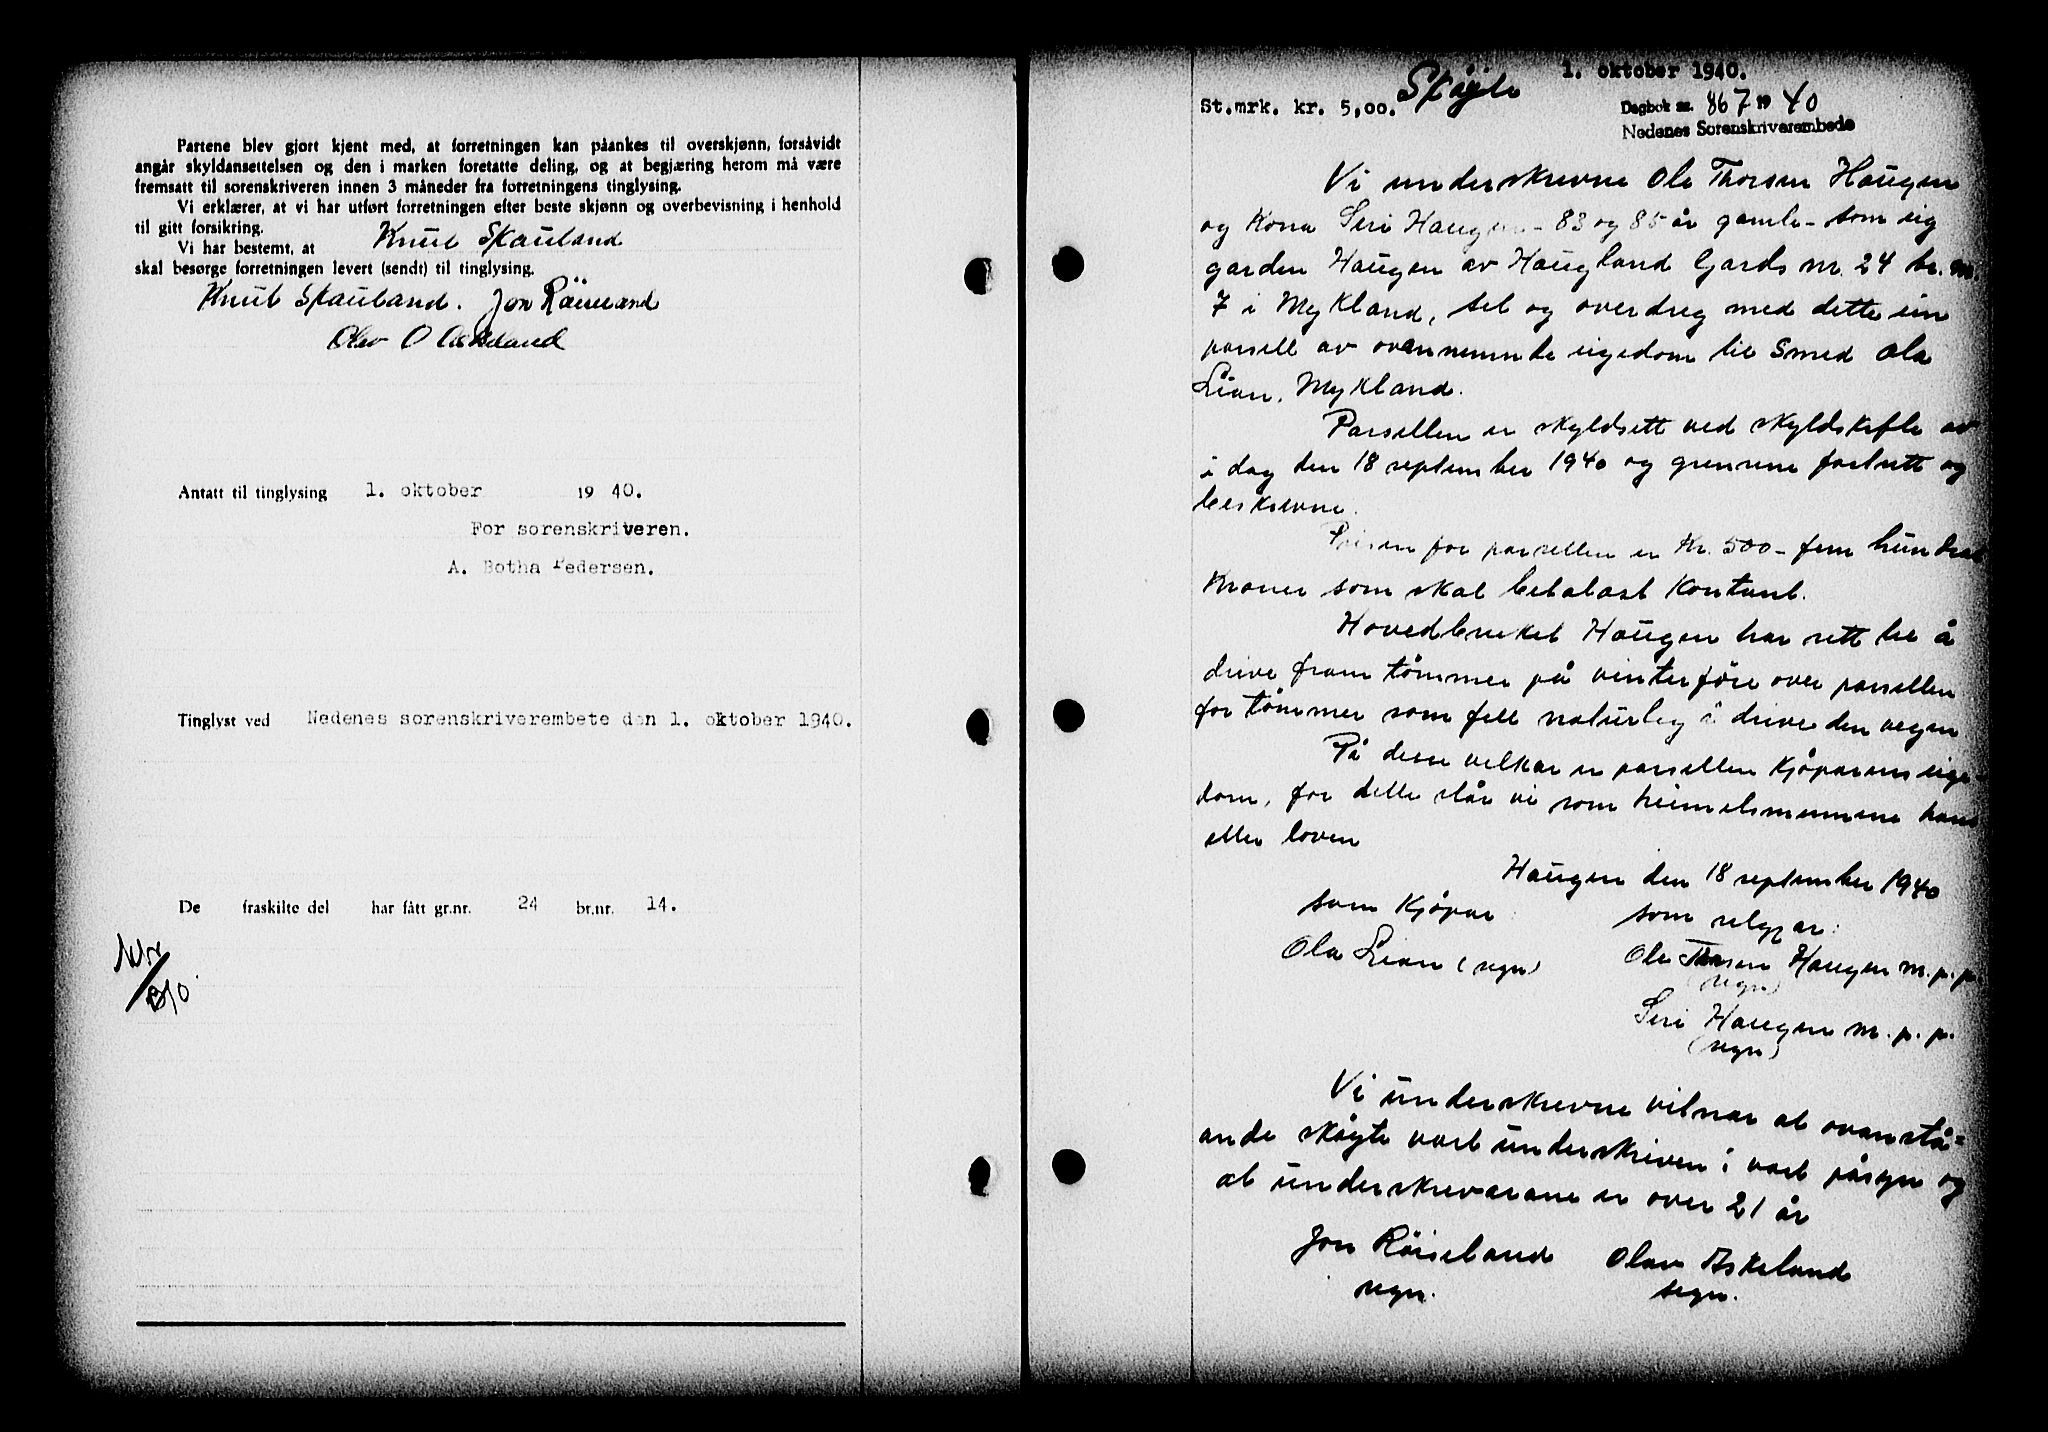 Partene blev gjort kjent med, at forretningen kan påankes til overskjønn, forsåvidt
angår skyldansettelsen og den i marken foretatte deling, og at begjæring herom må være
fremsatt til sorenskriveren innen 3 måneder fra forretningens tinglysing.
Vi erklærer, at vi har utført forretningen efter beste skjønn og overbevisning i henhold
til gitt forsikring.
Vi har bestemt, at Knut Skauland
skal besørge forretningen levert (sendt) til tinglysing.
Knut Skauland. Jon Röiseland
Olav O Askeland
Antatt til tinglysing 1. oktober 19 40.
For sorenskriveren.
A. Botha Pedersen.
Tinglyst ved Nedenes sorenskriverembete den 1. oktober 1940.
De fraskilte del har fått gr.nr. 24 br.nr. 14.
1. oktober 1940.
St.mrk. kr. 5,00. Skøyte
Dagbok nr. 867 19 40
Nedenes Sorenskriverembede
Vi underskrevne Ole Thorsen Haugen
og Kona Siri Haugen - 83 og 85 år gamle - som eig
garden Haugen av Haugland Gards nr. 24 br. nr.
7 i Mykland, sel og overdreg med dette ein
parsell av ovannemnte eigedom til Smed Ola
Lian, Mykland.
Parsellen er skyldsett ved skyldskifte av
i dag den 18 september 1940 og grensene fastsett og
beskrevne.
Prisen for parsellen er Kr. 500 - fem hundrad
Kroner som skal betalast Kontant.
Hovedbruket Haugen har rett til å
drive fram tømmer på vinterføre over parsellen
for tømmer som fell naturleg å drive den vegen
På desse vilkår er parsellen Kjøparens eige-
dom, for dette står vi som heimelsmennene hans
etter loven
Haugen den 18 september 1940
som Kjøpar som seljar:
Ola Lian (segn) Ole Thorsen Haugen m.p.p.
(segn)
Siri Haugen m.p.p.
(segn)
Vi underskrevne vitnar at ovanstå=
ande skøyte vart underskriven i vart påsyn og
at underskrivarane er over 21 år
Jon Röiseland Olav Askeland
segn. segn.